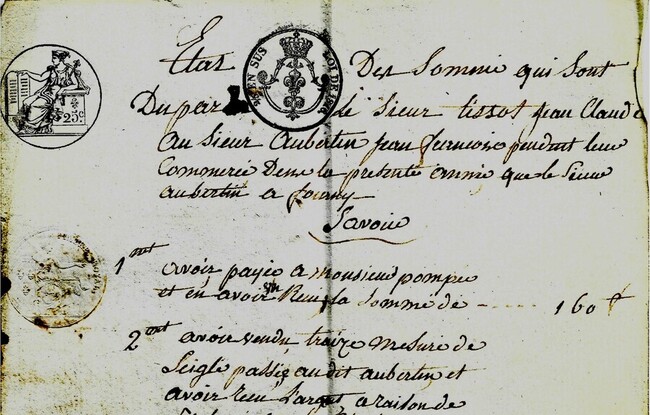 Etat Des Somme qui sont
Du par le sieur tissot jean Claude
au sieur aubertin jean pendant leur
Commerce Dans la presente année que le sieur
aubertin a fourny
Savoir
1ment avoir payé a monsieur pompée
et en avoir Reçu la somme de 160 f
2ment avoir vendu treize mesure de
Seigle passée audit aubertin et
avoir reçu l'argent a raison de
EN SUS
25c.